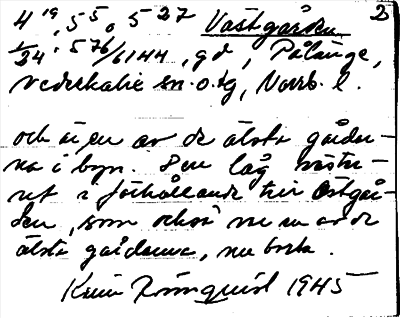 4 19, 5 5, 5 27 Västgården 2
1/24 . 576/6144, gd, Pålänge,
Nederkalix sn. o. tg, Norrb. l.
och är en av de älsta gårdar-
na i byn. Den låg väster-
ut i förhållande till Östgår-
den, som också var en av de
älsta gårdarna, nu borta.
Rönnquist 1945